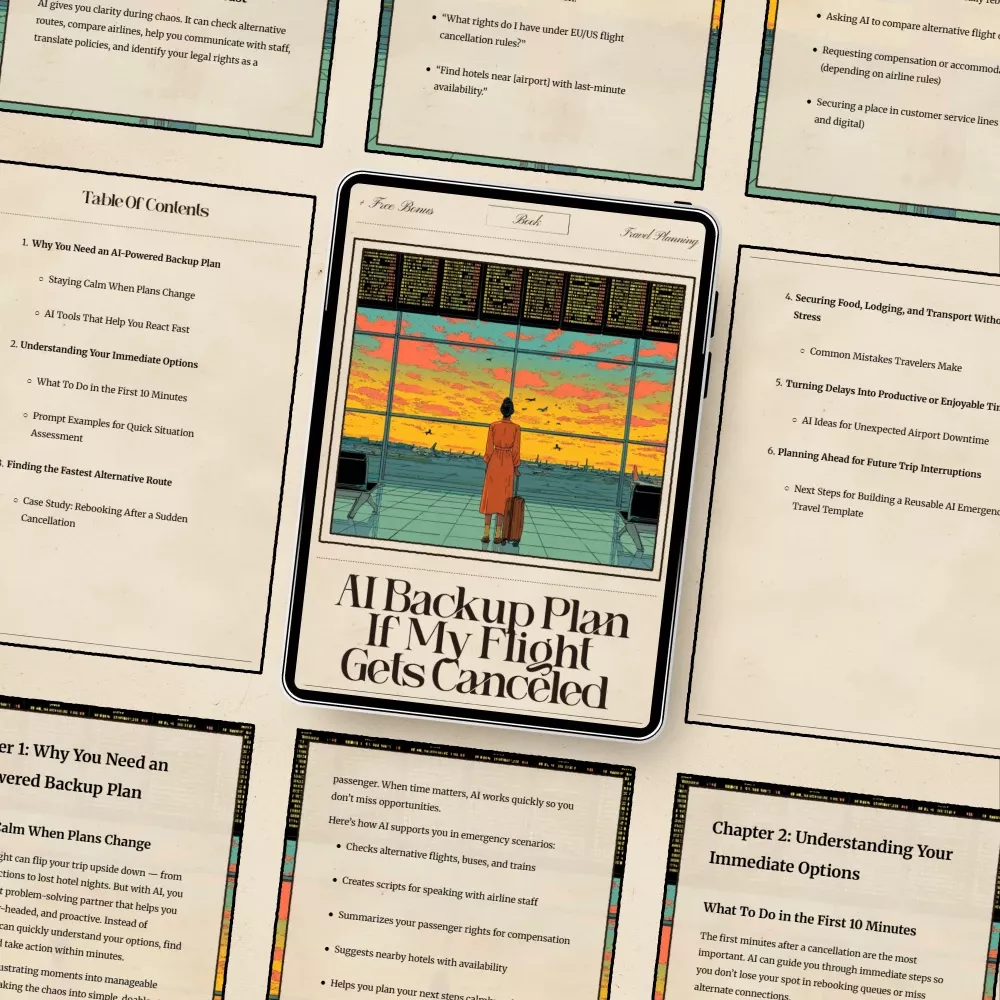 AI gives you clarity during chaos. It can check alternative
routes, compare airlines, help you communicate with staff,
translate policies, and identify your legal rights as a
• "What rights do I have under EU/US flight
cancellation rules?"
• "Find hotels near [airport] with last-minute
availability."
• Asking AI to compare alternative flight
• Requesting compensation or
(depending on airline rules)
• Securing a place in customer service lines
and digital)
Table Of Contents
1. Why You Need an AI-Powered Backup Plan
○ Staying Calm When Plans Change
○ AI Tools That Help You React Fast
2. Understanding Your Immediate Options
○ What To Do in the First 10 Minutes
○ Prompt Examples for Quick Situation
Assessment
3. Finding the Fastest Alternative Route
○ Case Study: Rebooking After a Sudden
Cancellation
+ Free Bonus
Book
Travel Planning
AI Backup Plan
If My Flight
Gets Canceled
4. Securing Food, Lodging, and Transport
Stress
○ Common Mistakes Travelers Make
5. Turning Delays Into Productive or Enjoyable
○ AI Ideas for Unexpected Airport Downtime
6. Planning Ahead for Future Trip Interruptions
○ Next Steps for Building a Reusable AI
Travel Template
er 1: Why You Need an
wered Backup Plan
Calm When Plans Change
ght can flip your trip upside down — from
ctions to lost hotel nights. But with AI, you
t problem-solving partner that helps you
-headed, and proactive. Instead of
can quickly understand your options, find
d take action within minutes.
ustrating moments into manageable
aking the chaos into simple,
passenger. When time matters, AI works quickly so you
don't miss opportunities.
Here's how AI supports you in emergency scenarios:
• Checks alternative flights, buses, and trains
• Creates scripts for speaking with airline staff
• Summarizes your passenger rights for compensation
• Suggests nearby hotels with availability
• Helps you plan your next steps
Chapter 2: Understanding Your
Immediate Options
What To Do in the First 10 Minutes
The first minutes after a cancellation are the most
important. AI can guide you through immediate steps so
you don't lose your spot in rebooking queues or miss
alternate connections.